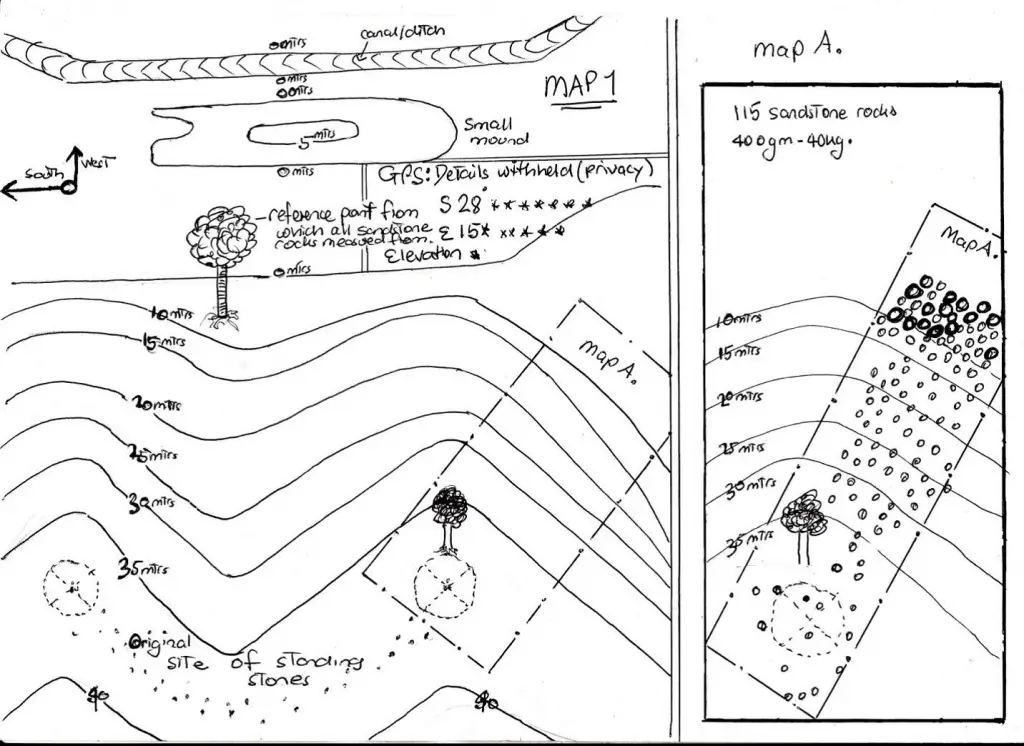 canal/ditch
0mtrs
0mtrs
0mtrs
MAP 1
5 mtrs
Small
mound
South
West
0mtrs
GPS: Details withheld (privacy)
S 28° *******
E 15* *****
Elevation *
reference point from
which all sandstone
rocks measured from.
0mtrs
10 mtrs
15 mtrs
20 mtrs
25 mtrs
30 mtrs
35 mtrs
Map A.
Original
site of standing
stones
40
40
map A.
115 sandstone rocks
400gm-40kg.
Map A.
10 mtrs
15 mtrs
20 mtrs
25 mtrs
30 mtrs
35 mtrs